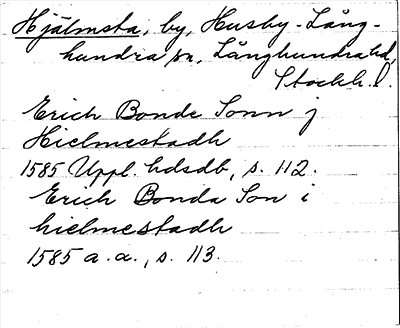 Hjälmsta, by, Husby-Lång-
hundra sn, Långhundra hd,
Stockh. l.
Erich Bonde Sonn j
Hielmestadh
1585 Uppl. hdsdb, s. 112.
Erich Bonda Son i
hielmestadh
1585 a.a., s. 113.